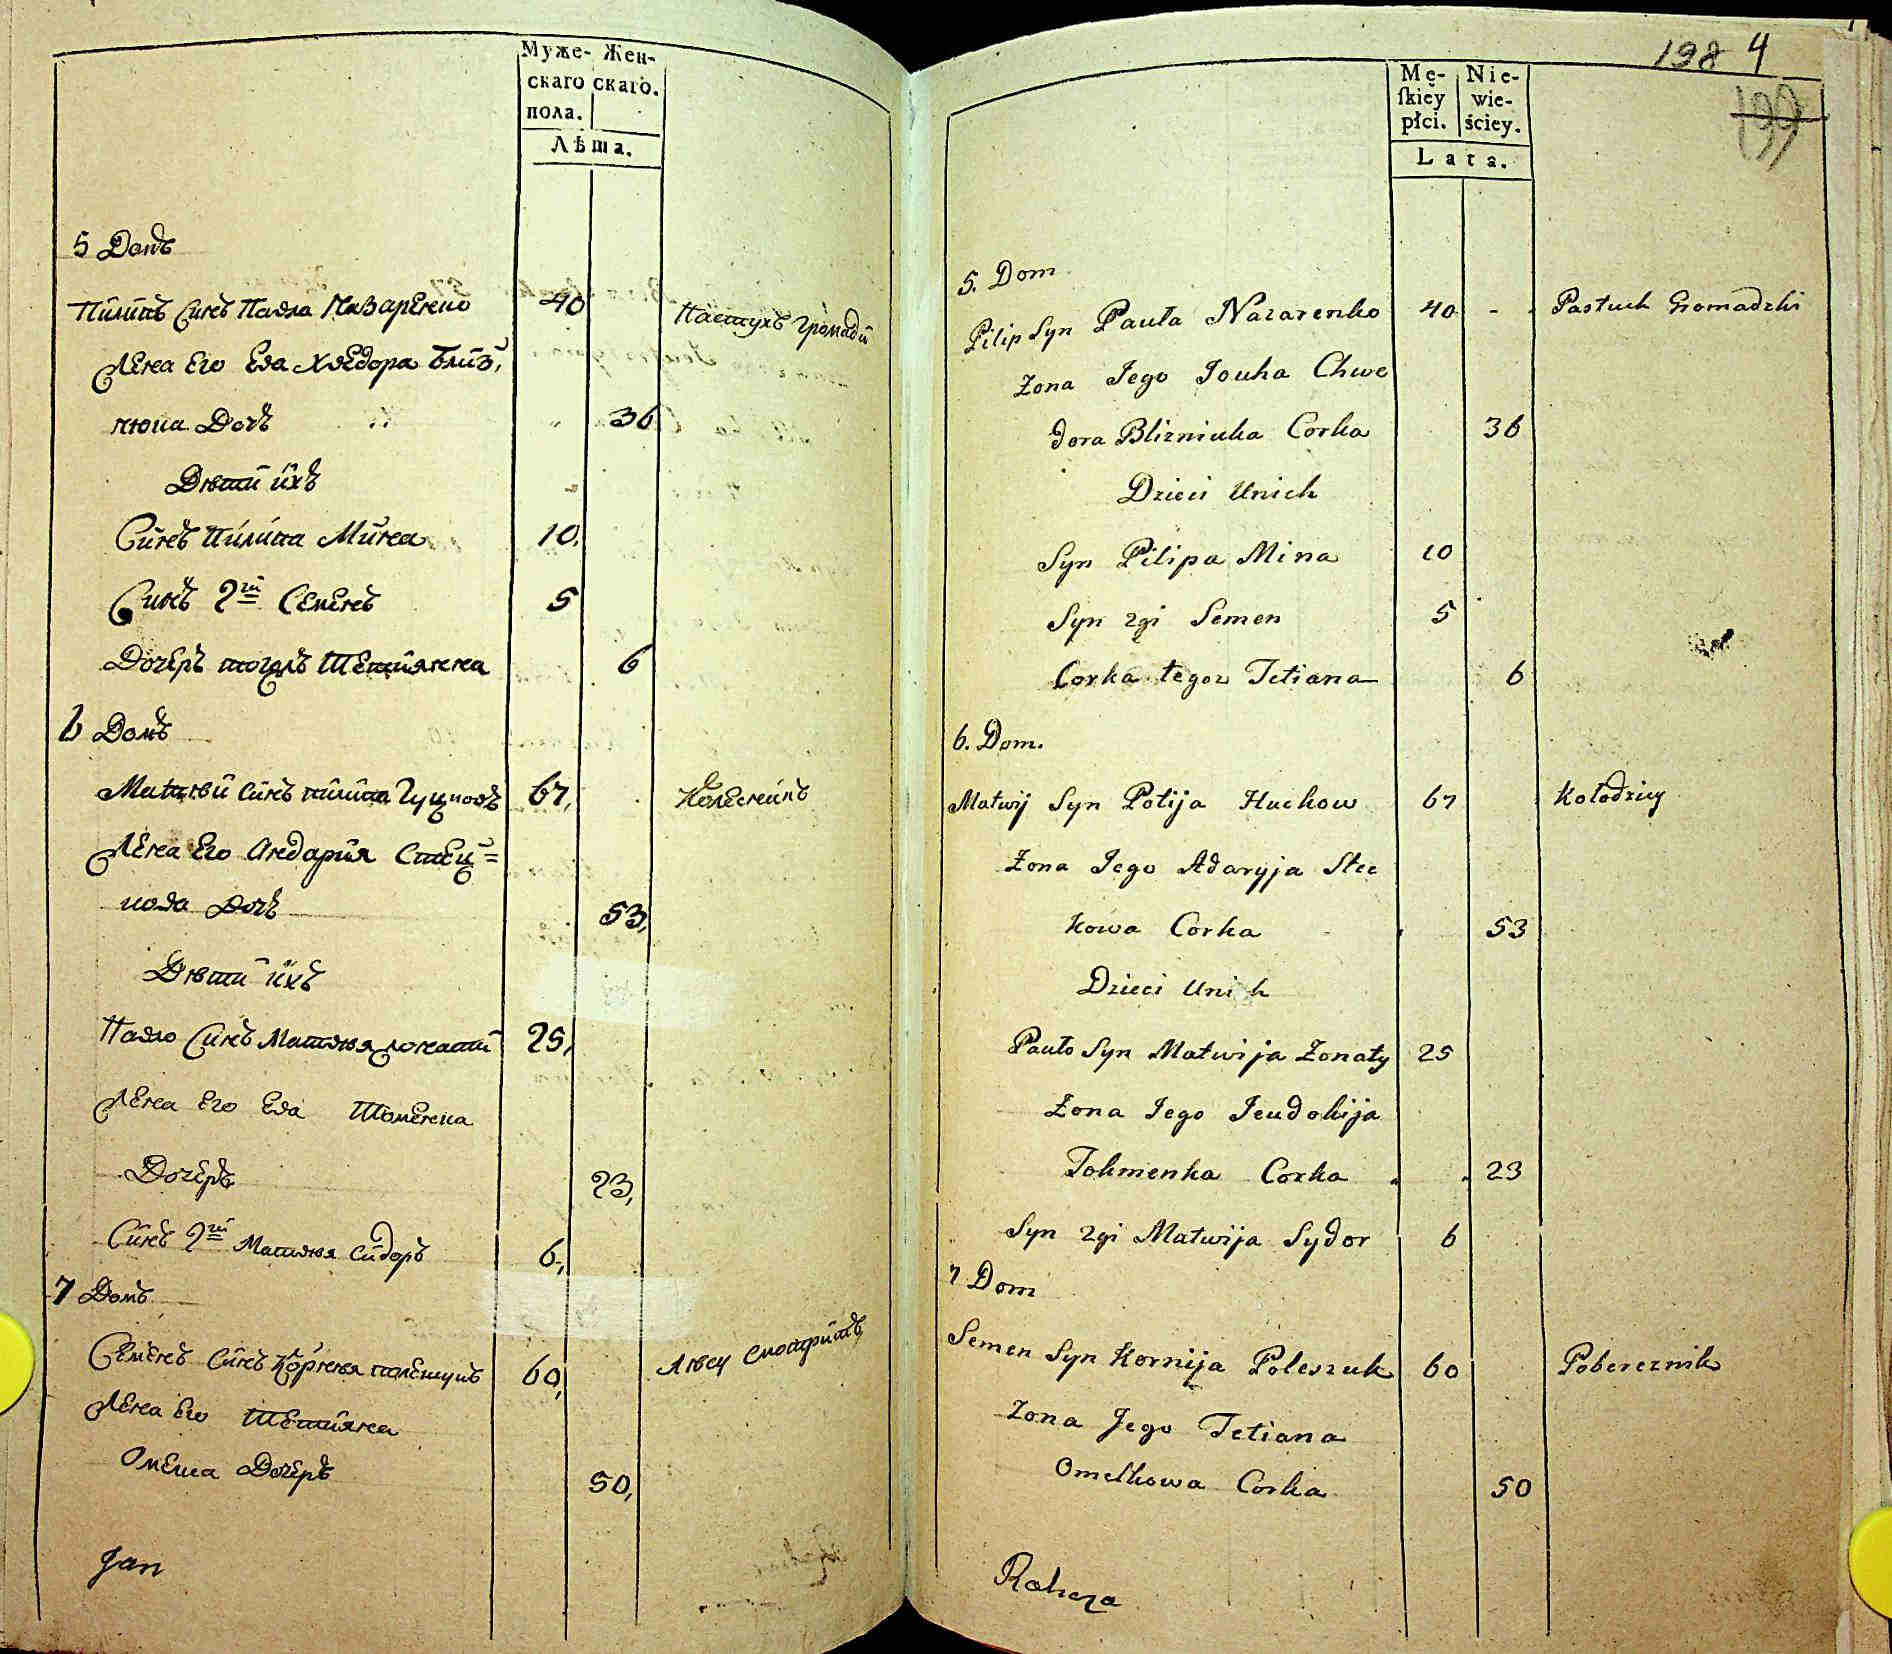 Муже- Жен-
скаго скаго.
пола.
Лѣта.
5 Домъ
Пилипъ Синъ Павла Назаренко 40 Пастухъ Громадзй
Жена Его Ева Хведора Близ,
нюка Дочъ 36
Дѣти ихъ
Синъ Пилипа Мина 10.
Синъ 2гй Семенъ 5
Дочеръ тогожъ Тетянна 6
6 Домъ
Матвѣй Синъ пилипа Гуцковъ 67, Колесникъ
Жена Его Андария Стец=
кова Дочъ 53,
Дѣти ихъ
Павло Синъ Матвѣя жонатй 25,
Жена Его Ева Томенка
Дочеръ 23,
Синъ 2гй Матвѣя Сидоръ 6,
7 Домъ
Семенъ Синъ Корнѣя полещукъ 60, Лѣсы смотритъ
Жена Его Тетияна
Омелка Дочеръ 50,
Jan
198 4
199
Mę- Nie-
ſkiey wie-
płci. ściey.
Lata.
5. Dom
Pilip Syn Pauła Nazarenko 40 - Pastuch Gromadzki
Zona Jego Jouha Chwe
dora Blizniuka Corka 36
Dzieci Unich
Syn Pilipa Mina 10
Syn 2gi Semen 5
Corka tegoz Tetiana 6
6. Dom.
Matwij Syn Potija Huckow 67 Kołodziy
Zona Jego Adaryja Stec
kowa Corka 53
Dzieci Unich
Pauło Syn Matwija Zonaty 25
Zona Jego Jeudokija
Tokmenka Corka 23
Syn 2gi Matwija Sydor 6
7 Dom
Semen Syn Kornija Poleszuk 60 Pobereznik
Zona Jego Tetiana
Omelkowa Corka 50
Rakcza